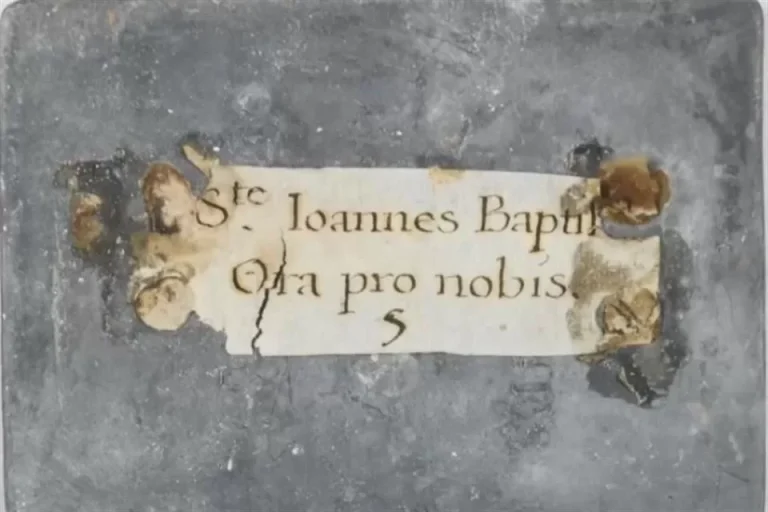 Ste Ioannes Baptist
Ora pro nobis.
5